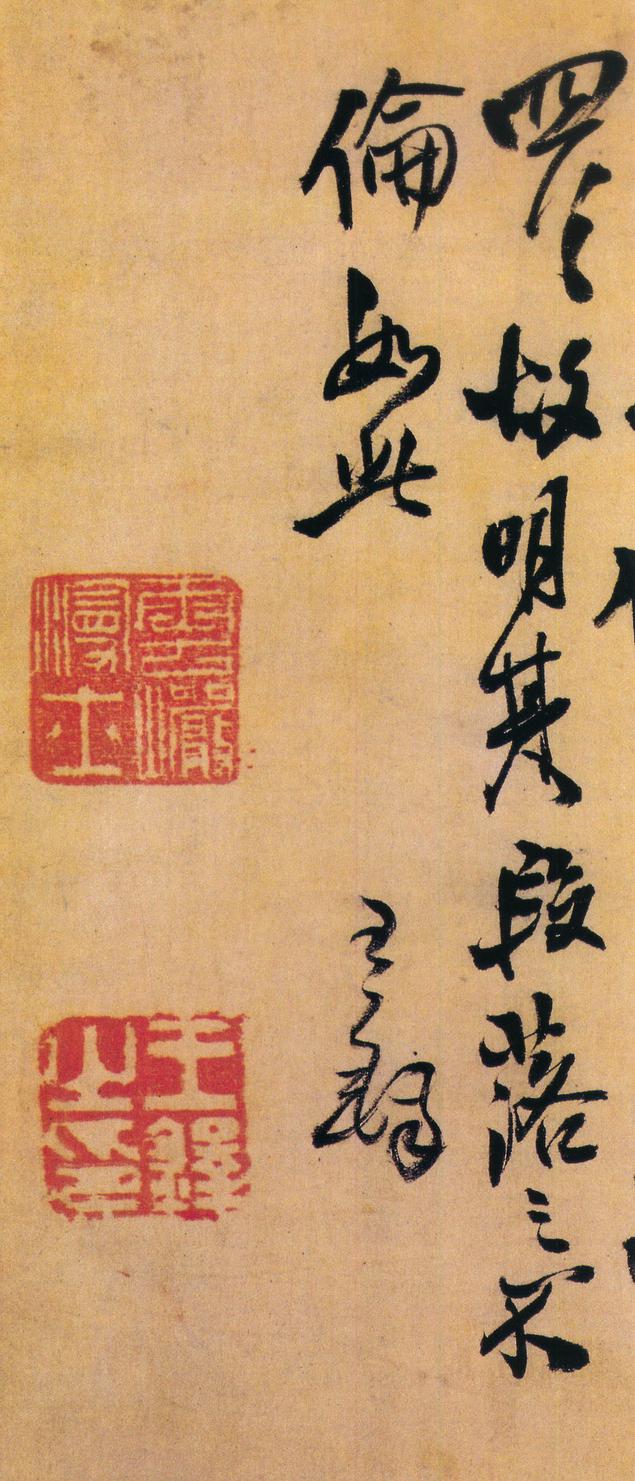 故明其段落之不
倫如此
王鐸
漫士
王鐸之印